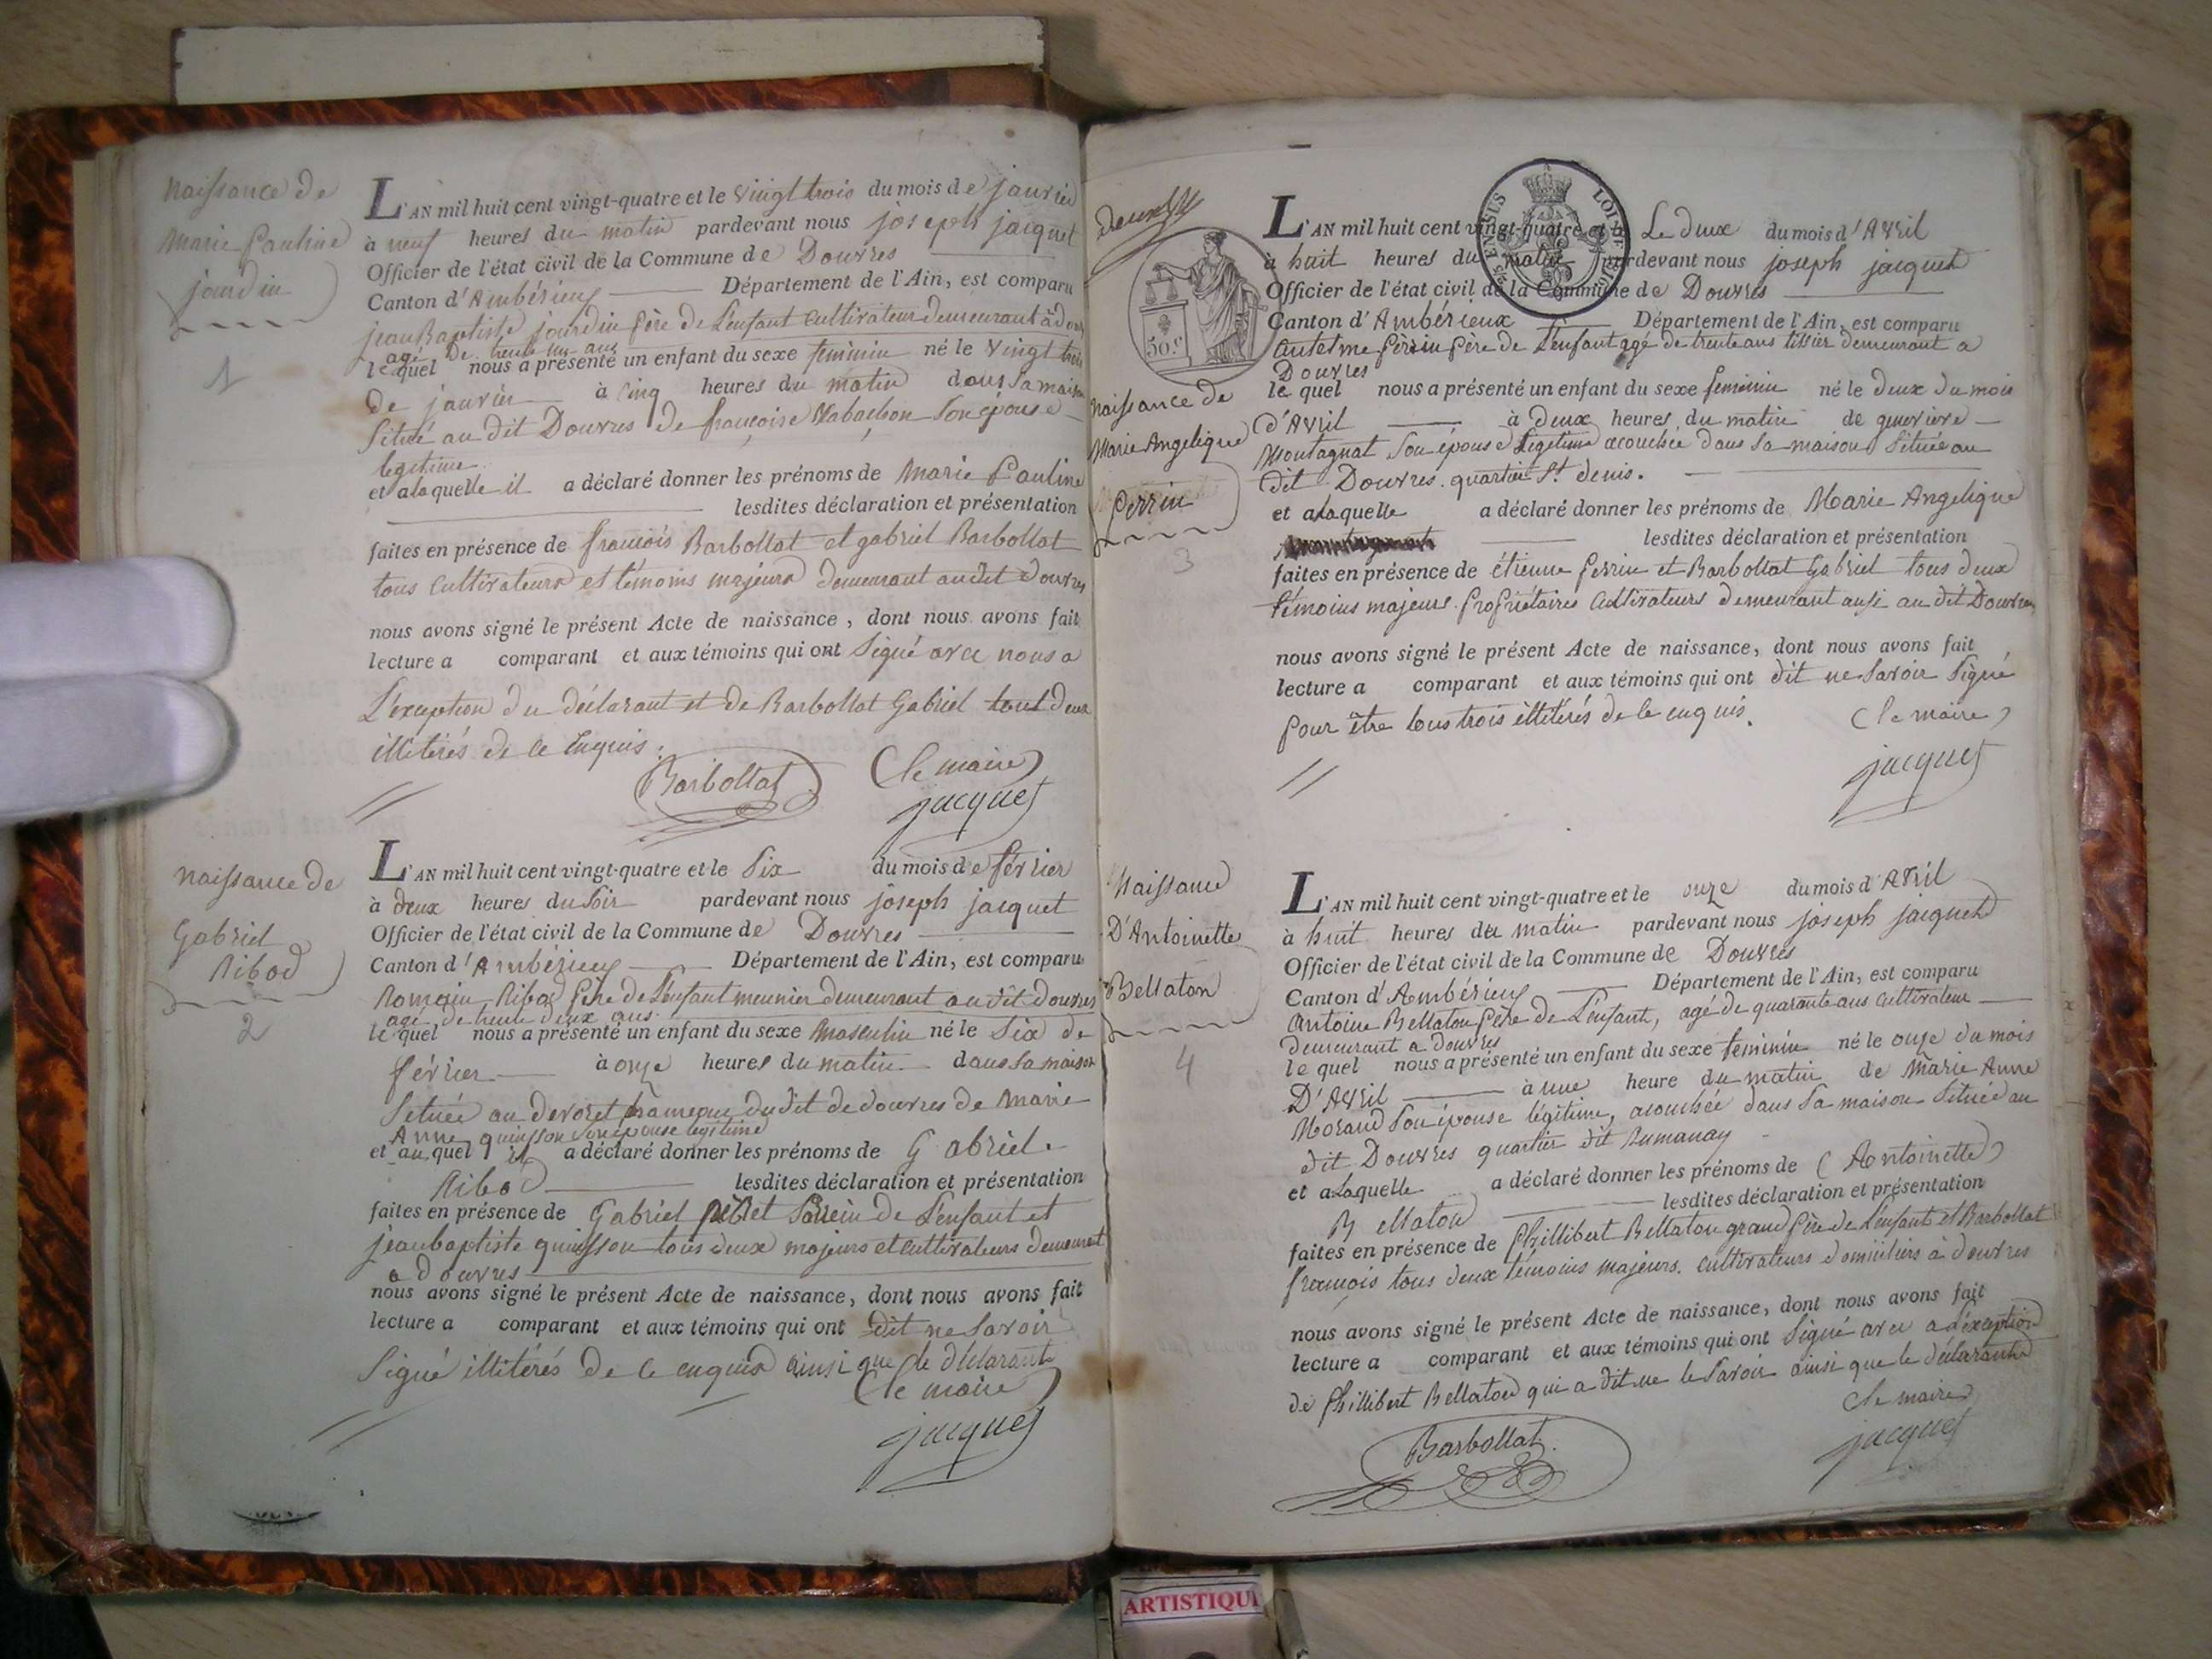 naissance de
Marie Pauline
jourdin
1
L'AN mil huit cent vingt-quatre et le vingt trois du mois de janvier
à neuf heures du matin pardevant nous joseph jacquet
Officier de l'état civil de la Commune de Douvres
Canton d'Ambérieux Département de l'Ain, est comparu
jean Baptiste jourdin père de L'enfant cultivateur demeurant à
agé de trente un ans
le quel nous a présenté un enfant du sexe feminin né le vingt trois
de janvier à cinq heures du matin dans sa maison
Située au dit Douvres de françoise Rabachon son épouse
legitime
et a laquelle il a déclaré donner les prénoms de Marie Pauline
lesdites déclaration et présentation
faites en présence de françois Barbollat et gabriel Barbollat
tous cultivateurs et témoins majeurs demeurant au dit Douvres
nous avons signé le présent Acte de naissance, dont nous avons fait
lecture a comparant et aux témoins qui ont Signé avec nous a
L'exception du déclarant et de Barbollat Gabriel tout deux
illitérés de ce Enquis.
Barbollat (le maire)
jacquet
naissance de
Gabriel
Ribod
2
L'AN mil huit cent vingt-quatre et le Six du mois de février
à deux heures du Soir pardevant nous joseph jacquet
Officier de l'état civil de la Commune de Douvres
Canton d'Ambérieux Département de l'Ain, est comparu
Romain Ribod père de L'enfant meunier demeurant au dit douvres
agé de trente deux ans
le quel nous a présenté un enfant du sexe Masculin né le Six de
février à onze heures du matin dans sa maison
Située au hameau du dit de douvres de Marie
Anne quinson son épouse legitime
et au quel il a déclaré donner les prénoms de Gabriel
Ribod lesdites déclaration et présentation
faites en présence de Gabriel Parrein de L'enfant et
jean baptiste quinsson tous deux majeurs et cultivateurs demeurant
a douvres
nous avons signé le présent Acte de naissance, dont nous avons fait
lecture a comparant et aux témoins qui ont dit ne Savoir
Signé illitérés de ce enquis ainsi que le déclarant
(le maire)
jacquet
50.c
naissance de
Marie Angelique
Perrin
3
L'AN mil huit cent vingt-quatre et le Le deux du mois d'Avril
à huit heures du matin pardevant nous joseph jacquet
Officier de l'état civil de la Commune de Douvres
Canton d'Ambérieux Département de l'Ain, est comparu
Antelme Perrin père de L'enfant agé de trente ans tissier demeurant a
Douvres
le quel nous a présenté un enfant du sexe feminin né le deux du mois
d'Avril à deux heures du matin de genevieve
Montagnat Son épouse légitime acouchée dans sa maison Située au
dit Douvres. quartier St. denis.
et a laquelle a déclaré donner les prénoms de Marie Angelique
lesdites déclaration et présentation
faites en présence de étienne Perrin et Barbollat Gabriel tous deux
témoins majeurs. propriétaires cultivateurs demeurant ausi au dit Douvres
nous avons signé le présent Acte de naissance, dont nous avons fait
lecture a comparant et aux témoins qui ont dit ne Savoir Signé
pour être tous trois illitérés de ce enquis.
(le maire)
jacquet
Naissance
D'Antoinette
Bellaton
4
L'AN mil huit cent vingt-quatre et le onze du mois d'Avril
à huit heures du matin pardevant nous joseph jacquet
Officier de l'état civil de la Commune de Douvres
Canton d'Ambérieux Département de l'Ain, est comparu
Antoine Bellaton père de L'enfant, agé de quarante ans cultivateur
demeurant a douvres
le quel nous a présenté un enfant du sexe feminin né le onze du mois
D'Avril à une heure du matin de Marie Anne
Morand Son épouse légitime, acouchée dans Sa maison Située au
dit Douvres quartier dit Rumanay
et a laquelle a déclaré donner les prénoms de (Antoinette)
Bellaton lesdites déclaration et présentation
faites en présence de Phillibert Bellaton grand père de L'enfant et Barbollat
françois tous deux témoins majeurs. cultivateurs domiciliers à douvres
nous avons signé le présent Acte de naissance, dont nous avons fait
lecture a comparant et aux témoins qui ont Signé avec a L'exception
de Phillibert Bellaton qui a dit ne le Savoir ainsi que le déclarant
Barbollat (le maire)
jacquet
ARTISTIQU